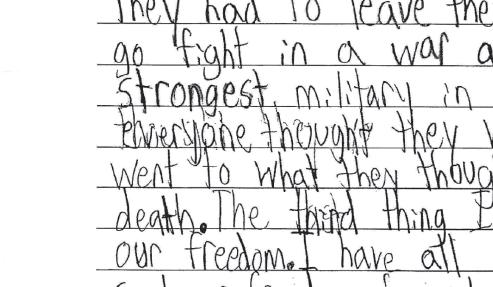 They had to leave the
go fight in a war a
strongest military in
everyone thought they
went to what they thoug
death. The third thing
our freedom. I have all